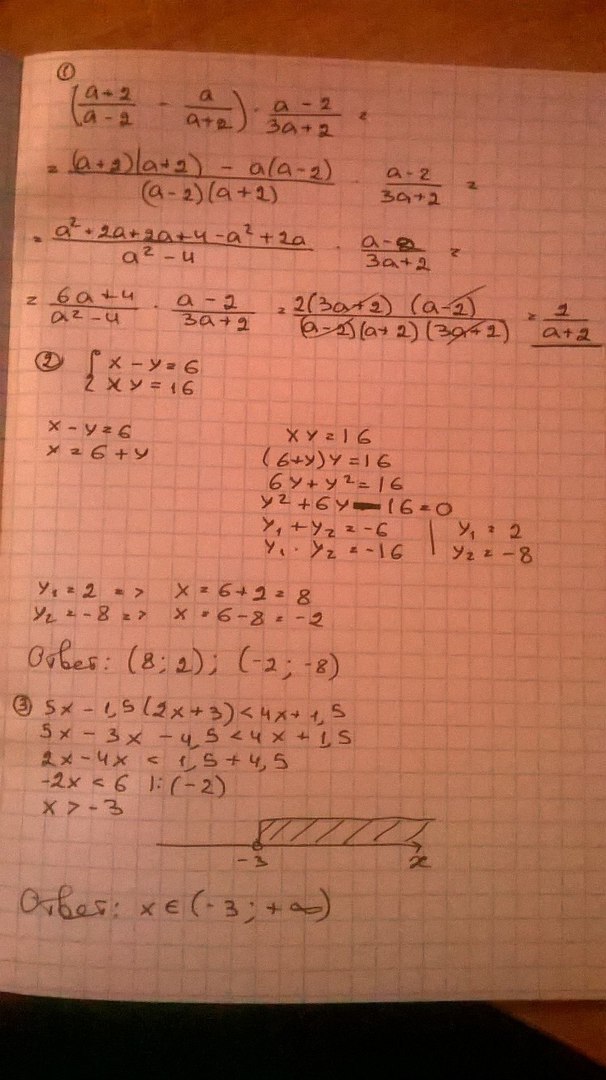 ①
(a+2/a-2 - a/a+2) · a-2/3a+2 =
= (a+2)(a+2) - a(a-2)/(a-2)(a+2) · a-2/3a+2 =
= a²+2a+2a+4-a²+2a/a²-4 · a-2/3a+2 =
= 6a+4/a²-4 · a-2/3a+2 = 2(3a+2)(a-2)/(a-2)(a+2)(3a+2) = 2/a+2
② { x - y = 6
xy = 16
x - y = 6
x = 6 + y
xy = 16
(6+y)y = 16
6y + y² = 16
y² + 6y - 16 = 0
y₁ + y₂ = -6 | y₁ = 2
y₁ · y₂ = -16 | y₂ = -8
y₁ = 2 => x = 6+2 = 8
y₂ = -8 => x = 6-8 = -2
Ответ: (8; 2); (-2; -8)
③ 5x - 1,5(2x+3) < 4x + 1,5
5x - 3x - 4,5 < 4x + 1,5
2x - 4x < 1,5 + 4,5
-2x < 6 |: (-2)
x > -3
-3 x
Ответ: x ∈ (-3; +∞)